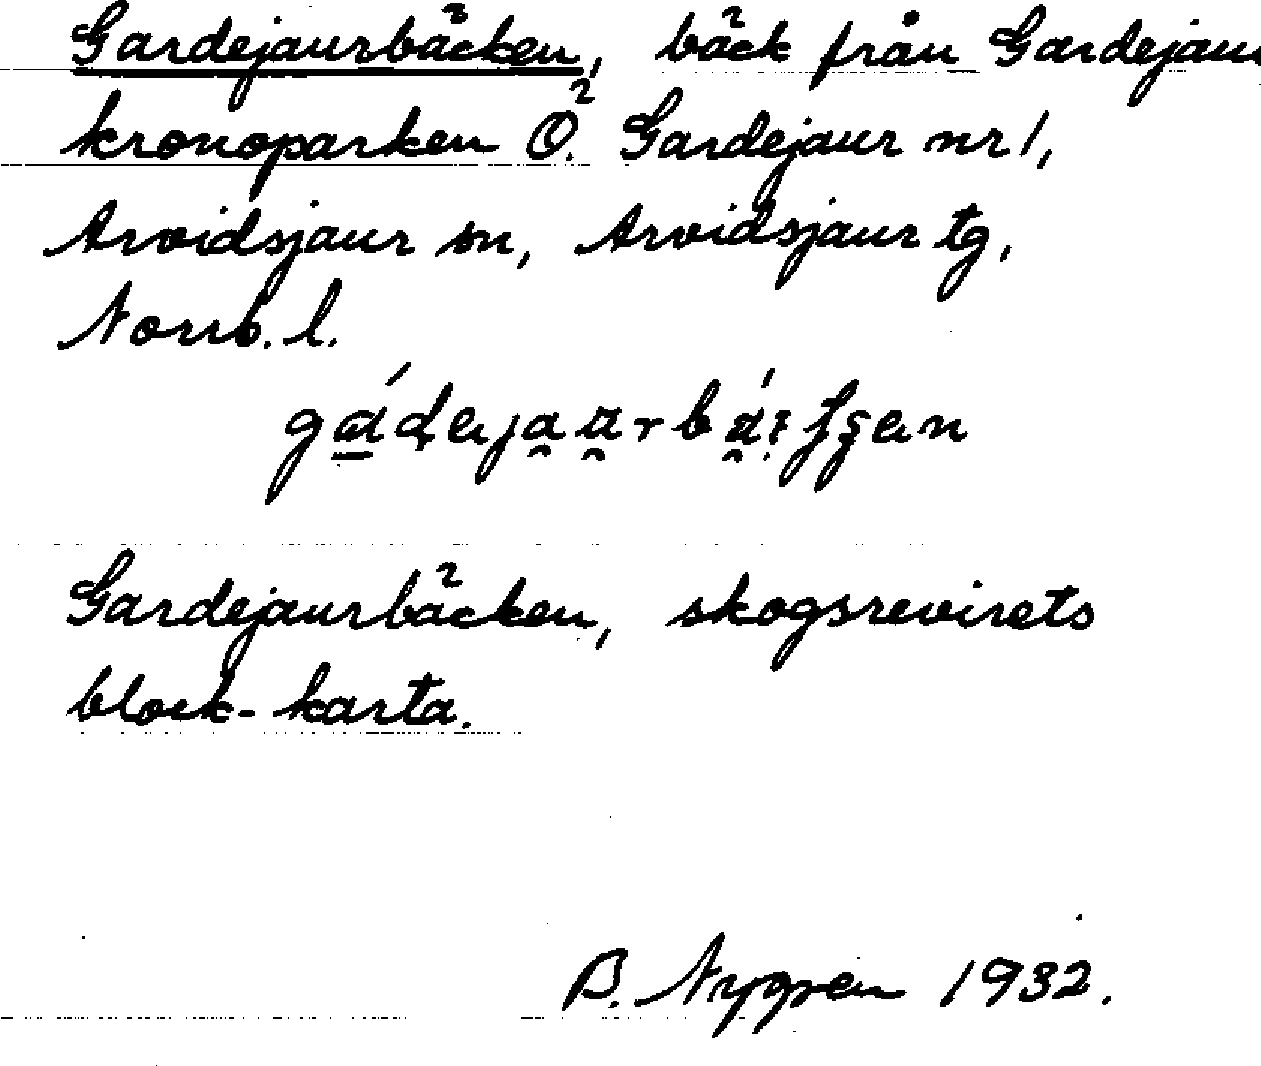 Gardejaurbäcken, bäck från Gardejaur
kronoparken Ö. Gardejaur nr 1,
Arvidsjaur sn, Arvidsjaur tg,
Norrb. l.
Gardejaurbäcken, skogsrevirets
block-karta.
B. Nygren 1932.